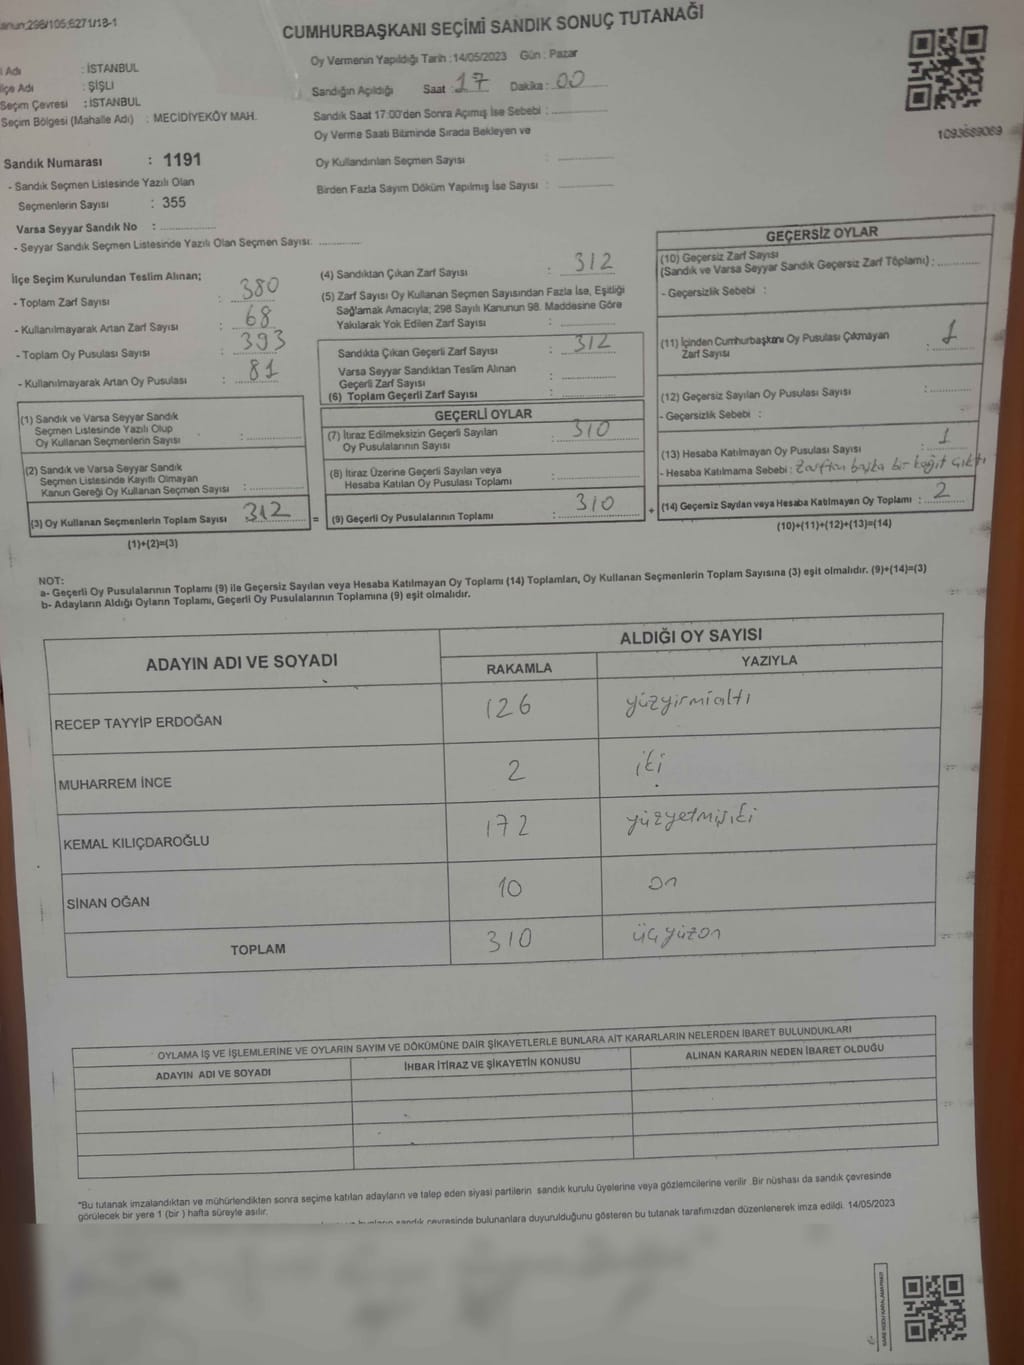 CUMHURBAŞKANI SEÇİMİ SANDIK SONUÇ TUTANAĞI
Oy Vermenin Yapıldığı Tarih :14/05/2023 Gün : Pazar
: İSTANBUL
: ŞİŞLİ
Seçim Çevresi : İSTANBUL
Seçim Bölgesi (Mahalle Adı) : MECİDİYEKÖY MAH.
Sandığın Açıldığı Saat : 17 Dakika : 00
Sandık Saat 17:00'den Sonra Açımış İse Sebebi :
Oy Verme Saati Bitiminde Sırada Bekleyen ve
Oy Kullandırılan Seçmen Sayısı :
Birden Fazla Sayım Döküm Yapılmış İse Sayısı :
1093689069
Sandık Numarası : 1191
- Sandık Seçmen Listesinde Yazılı Olan
Seçmenlerin Sayısı : 355
Varsa Seyyar Sandık No :
- Seyyar Sandık Seçmen Listesinde Yazılı Olan Seçmen Sayısı:
İlçe Seçim Kurulundan Teslim Alınan;
- Toplam Zarf Sayısı : 380
- Kullanılmayarak Artan Zarf Sayısı : 68
- Toplam Oy Pusulası Sayısı : 393
- Kullanılmayarak Artan Oy Pusulası : 81
(1) Sandık ve Varsa Seyyar Sandık
Seçmen Listesinde Yazılı Olup
Oy Kullanan Seçmenlerin Sayısı :
(2) Sandık ve Varsa Seyyar Sandık
Seçmen Listesinde Kayıtlı Olmayan
Kanun Gereği Oy Kullanan Seçmen Sayısı :
(3) Oy Kullanan Seçmenlerin Toplam Sayısı 312 =
(1)+(2)=(3)
(4) Sandıktan Çıkan Zarf Sayısı : 312
(5) Zarf Sayısı Oy Kullanan Seçmen Sayısından Fazla İse, Eşitliği
Sağlamak Amacıyla; 298 Sayılı Kanunun 98. Maddesine Göre
Yakılarak Yok Edilen Zarf Sayısı :
Sandıkta Çıkan Geçerli Zarf Sayısı : 312
Varsa Seyyar Sandıktan Teslim Alınan
Geçerli Zarf Sayısı :
(6) Toplam Geçerli Zarf Sayısı :
GEÇERLİ OYLAR
(7) İtiraz Edilmeksizin Geçerli Sayılan
Oy Pusulalarının Sayısı : 310
(8) İtiraz Üzerine Geçerli Sayılan veya
Hesaba Katılan Oy Pusulası Toplamı :
(9) Geçerli Oy Pusulalarının Toplamı : 310 +
GEÇERSİZ OYLAR
(10) Geçersiz Zarf Sayısı
(Sandık ve Varsa Seyyar Sandık Geçersiz Zarf Toplamı) :
- Geçersizlik Sebebi :
(11) İçinden Cumhurbaşkanı Oy Pusulası Çıkmayan
Zarf Sayısı : 1
(12) Geçersiz Sayılan Oy Pusulası Sayısı :
- Geçersizlik Sebebi :
(13) Hesaba Katılmayan Oy Pusulası Sayısı : 1
- Hesaba Katılmama Sebebi : Zarftan başka bir kağıt çıktı
(14) Geçersiz Sayılan veya Hesaba Katılmayan Oy Toplamı : 2
(10)+(11)+(12)+(13)=(14)
NOT:
a- Geçerli Oy Pusulalarının Toplamı (9) ile Geçersiz Sayılan veya Hesaba Katılmayan Oy Toplamı (14) Toplamları, Oy Kullanan Seçmenlerin Toplam Sayısına (3) eşit olmalıdır. (9)+(14)=(3)
b- Adayların Aldığı Oyların Toplamı, Geçerli Oy Pusulalarının Toplamına (9) eşit olmalıdır.
ADAYIN ADI VE SOYADI ALDIĞI OY SAYISI
RAKAMLA YAZIYLA
RECEP TAYYİP ERDOĞAN 126 yüzyirmialtı
MUHARREM İNCE 2 iki
KEMAL KILIÇDAROĞLU 172 yüzyetmişiki
SİNAN OĞAN 10 on
TOPLAM 310 üçyüzon
OYLAMA İŞ VE İŞLEMLERİNE VE OYLARIN SAYIM VE DÖKÜMÜNE DAİR ŞİKAYETLERLE BUNLARA AİT KARARLARIN NELERDEN İBARET BULUNDUKLARI
ADAYIN ADI VE SOYADI İHBAR İTİRAZ VE ŞİKAYETİN KONUSU ALINAN KARARIN NEDEN İBARET OLDUĞU
*Bu tutanak imzalandıktan ve mühürlendikten sonra seçime katılan adayların ve talep eden siyasi partilerin sandık kurulu üyelerine veya gözlemcilerine verilir .Bir nüshası da sandık çevresinde
görülecek bir yere 1 (bir ) hafta süreyle asılır.
sandık çevresinde bulunanlara duyurulduğunu gösteren bu tutanak tarafımızdan düzenlenerek imza edildi. 14/05/2023